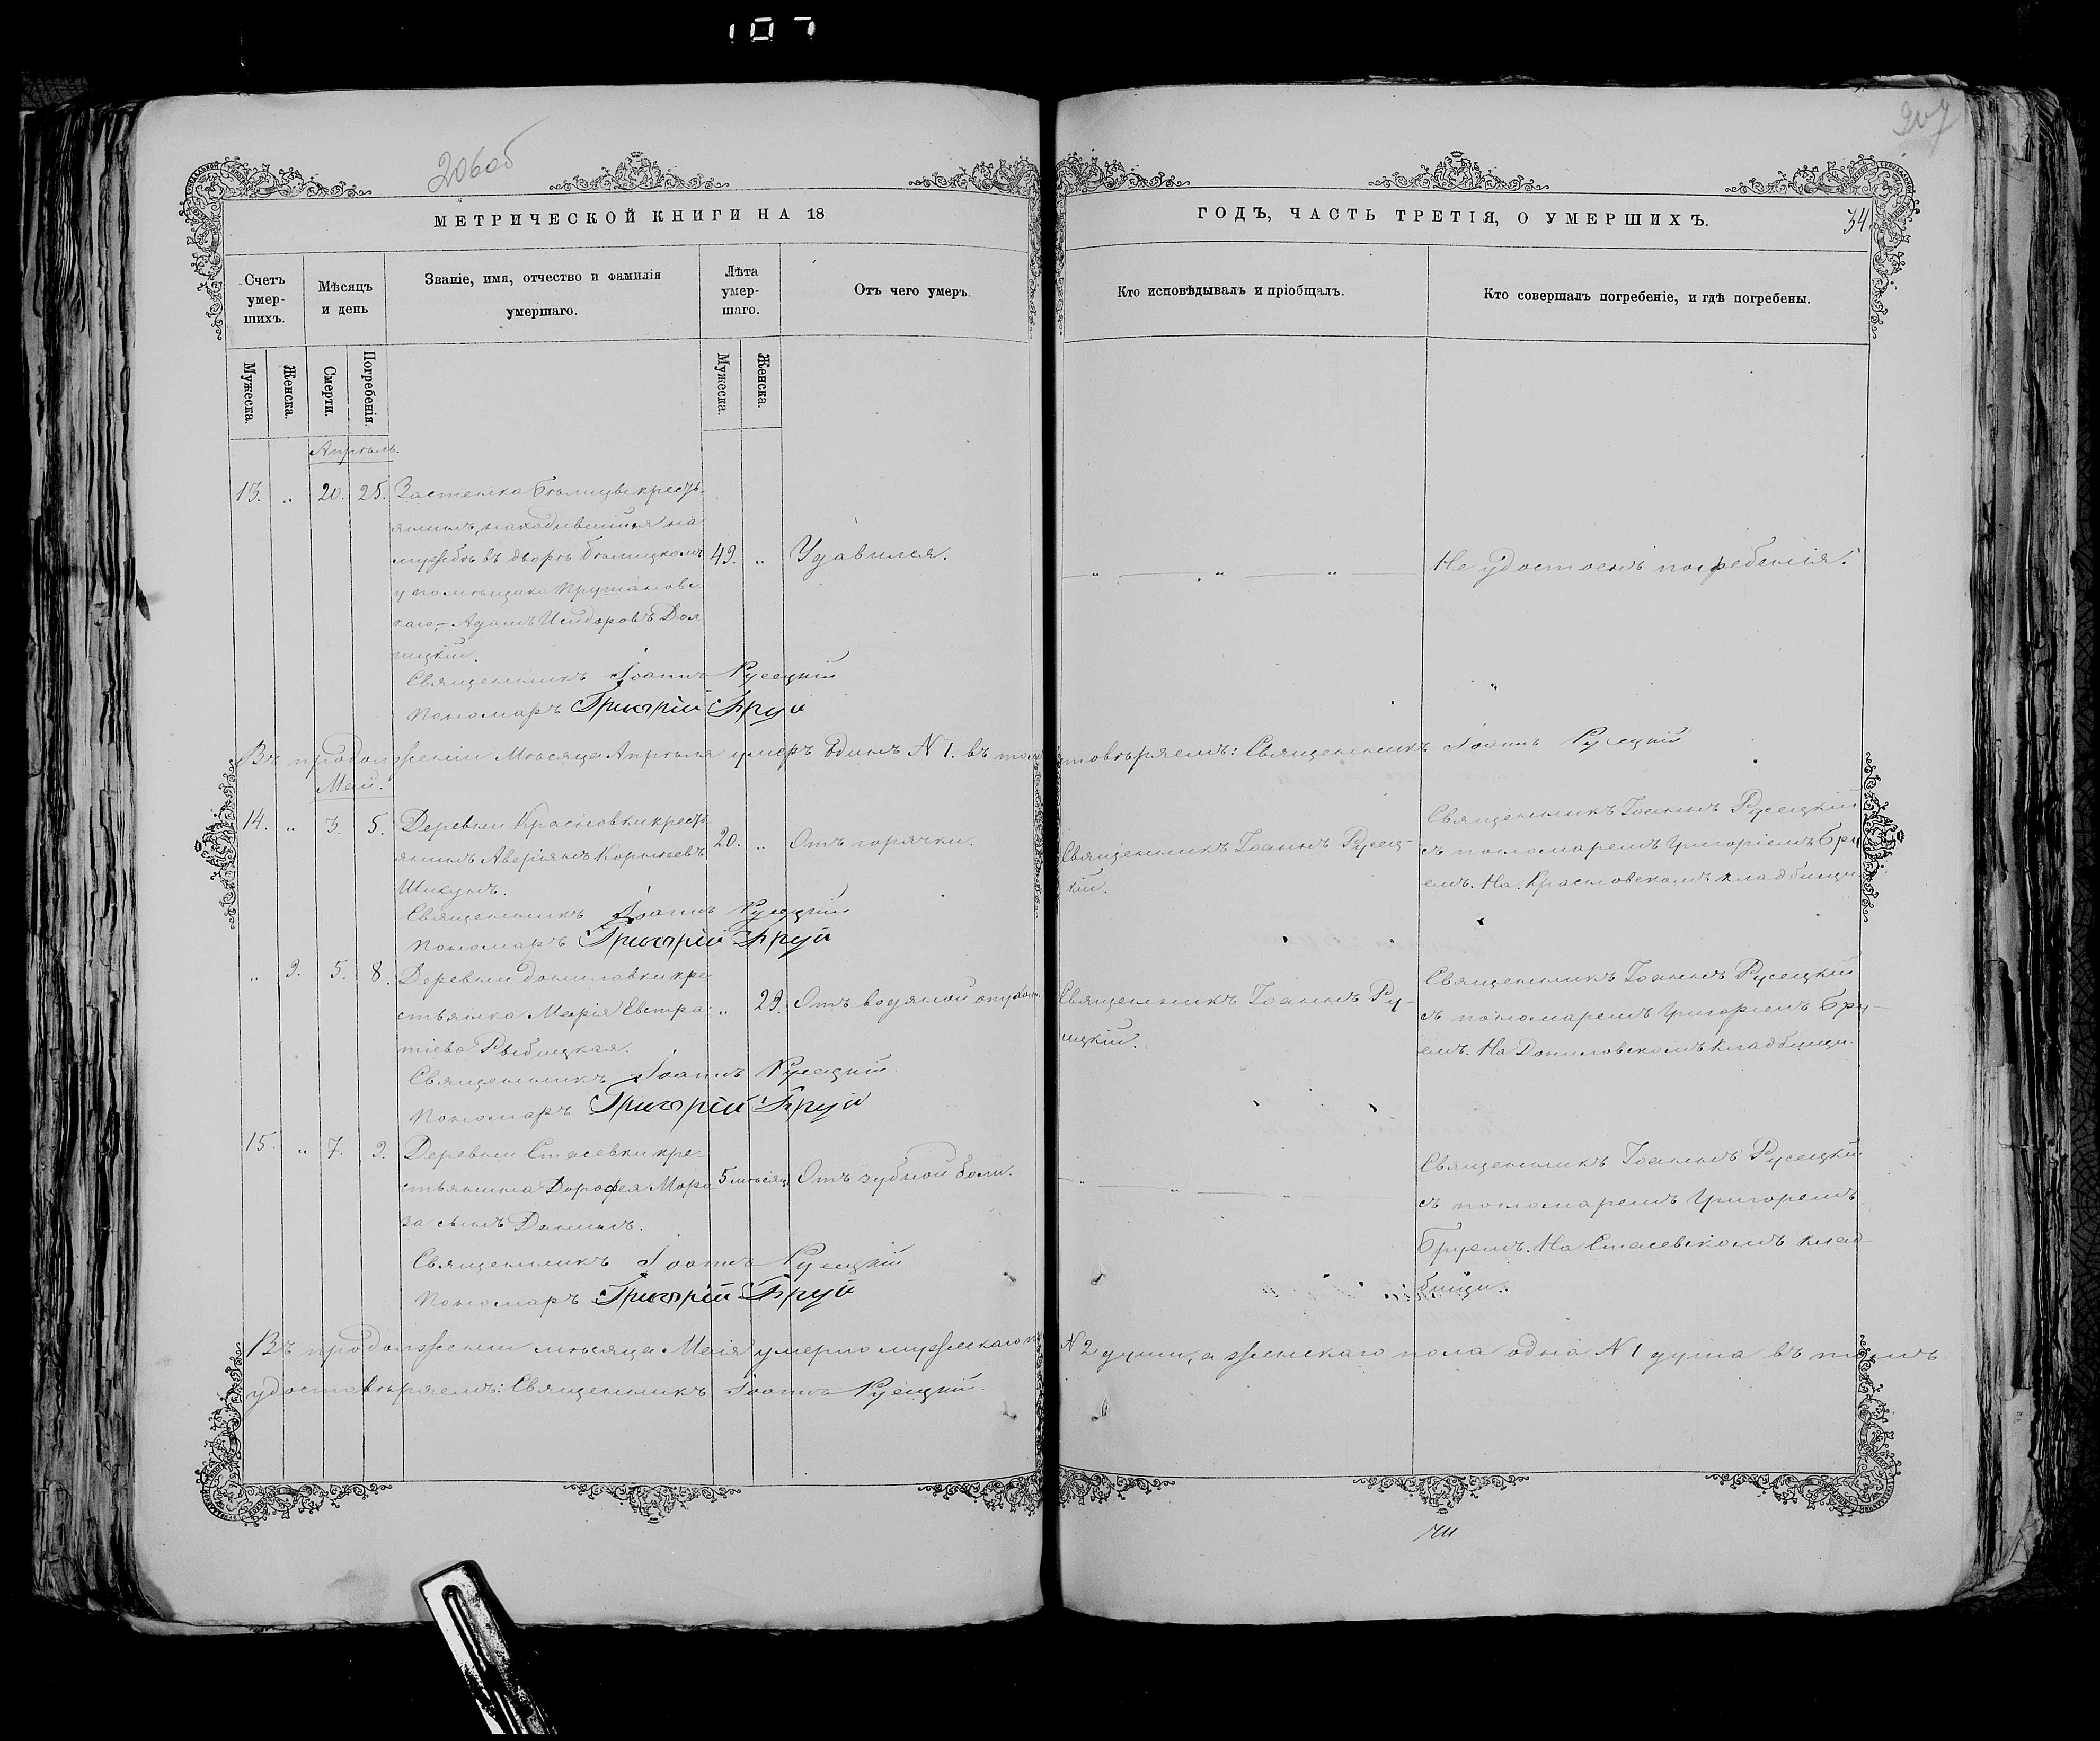 107
206об
207
МЕТРИЧЕСКОЙ КНИГИ НА 18
ГОДЪ, ЧАСТЬ ТРЕТІЯ, О УМЕРШИХЪ.
34
Счетъ умер-шихъ.
Мѣсяцъ и день
Званіе, имя, отчество и фамилія умершаго.
Лѣта умер-шаго.
Отъ чего умеръ.
Кто исповѣдывалъ и пріобщалъ.
Кто совершалъ погребеніе, и гдѣ погребены.
Мужеска.
Женска.
Смерти.
Погребенія.
Мужеска.
Женска.
Апрѣль.
13. „ 20. 25. Застенка Бѣлицы кресть-
янинъ, находившійся на
службѣ въ дворѣ Бѣлицкомъ 49. „ Удавился.
„ „ „ Не удостоенъ погребенія.
у помѣщика Прушановс-
каго,- Адамъ Исидоровъ Дол
ницкій.
Священникъ Іоаннъ Русецкій
Пономарь Григорій Бруй
Въ продолженіи Мѣсяца Апрѣля умеръ одинъ N 1. въ томъ
удостовѣряемъ: Священникъ Іоаннъ Русецкій
Май.
14. „ 3. 5. Деревни Красновки кресть-
янинъ Аверіянъ Корнѣевъ 20. „ Отъ горячки.
Шикунъ.
Священникъ Іоаннъ Русец-
кій.
Священникъ Іоаннъ Русецкій
съ пономаремъ Григоріемъ Бру
емъ. На Красновскомъ кладбищи
Священникъ Іоаннъ Русецкій
Пономарь Григорій Бруй
„ 9. 5. 8. Деревни Даниловки кре
стьянка Марія Евстра- „ 29. Отъ водяной опухоли.
тіева Рыбицкая.
Священникъ Іоаннъ Ру-
сецкій.
Священникъ Іоаннъ Русецкій
съ пономаремъ Григоріемъ Бру-
емъ. На Даниловскомъ кладбищи.
Священникъ Іоаннъ Русецкій
Пономарь Григорій Бруй
15. „ 7. 9. Деревни Стасевки кре-
стьянина Дорофея Моро 5 мѣсяц Отъ зубной боли.
за сынъ Даніилъ.
„ „ „
Священникъ Іоаннъ Русецкій
съ пономаремъ Григоремъ
Бруемъ. На Стасевскомъ клад-
бищи.
Священникъ Іоаннъ Русецкій
Пономарь Григорій Бруй
Въ продолженіи мѣсяца Маія умерло мужескаго N 2 души, а женскаго пола одна N 1 душа въ томъ
удостовѣряемъ: Священникъ Іоаннъ Русецкій.